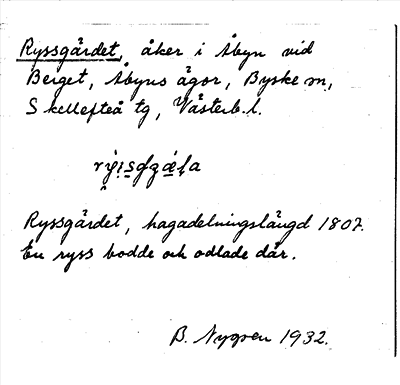 Ryssgårdet, åker i Åbyn vid
Berget, Åbyns ägor, Byske sn,
Skellefteå tg, Västerb. l.
Ryssgårdet, hagadelningslängd 1807.
En ryss bodde och odlade där.
B. Nygren 1932.